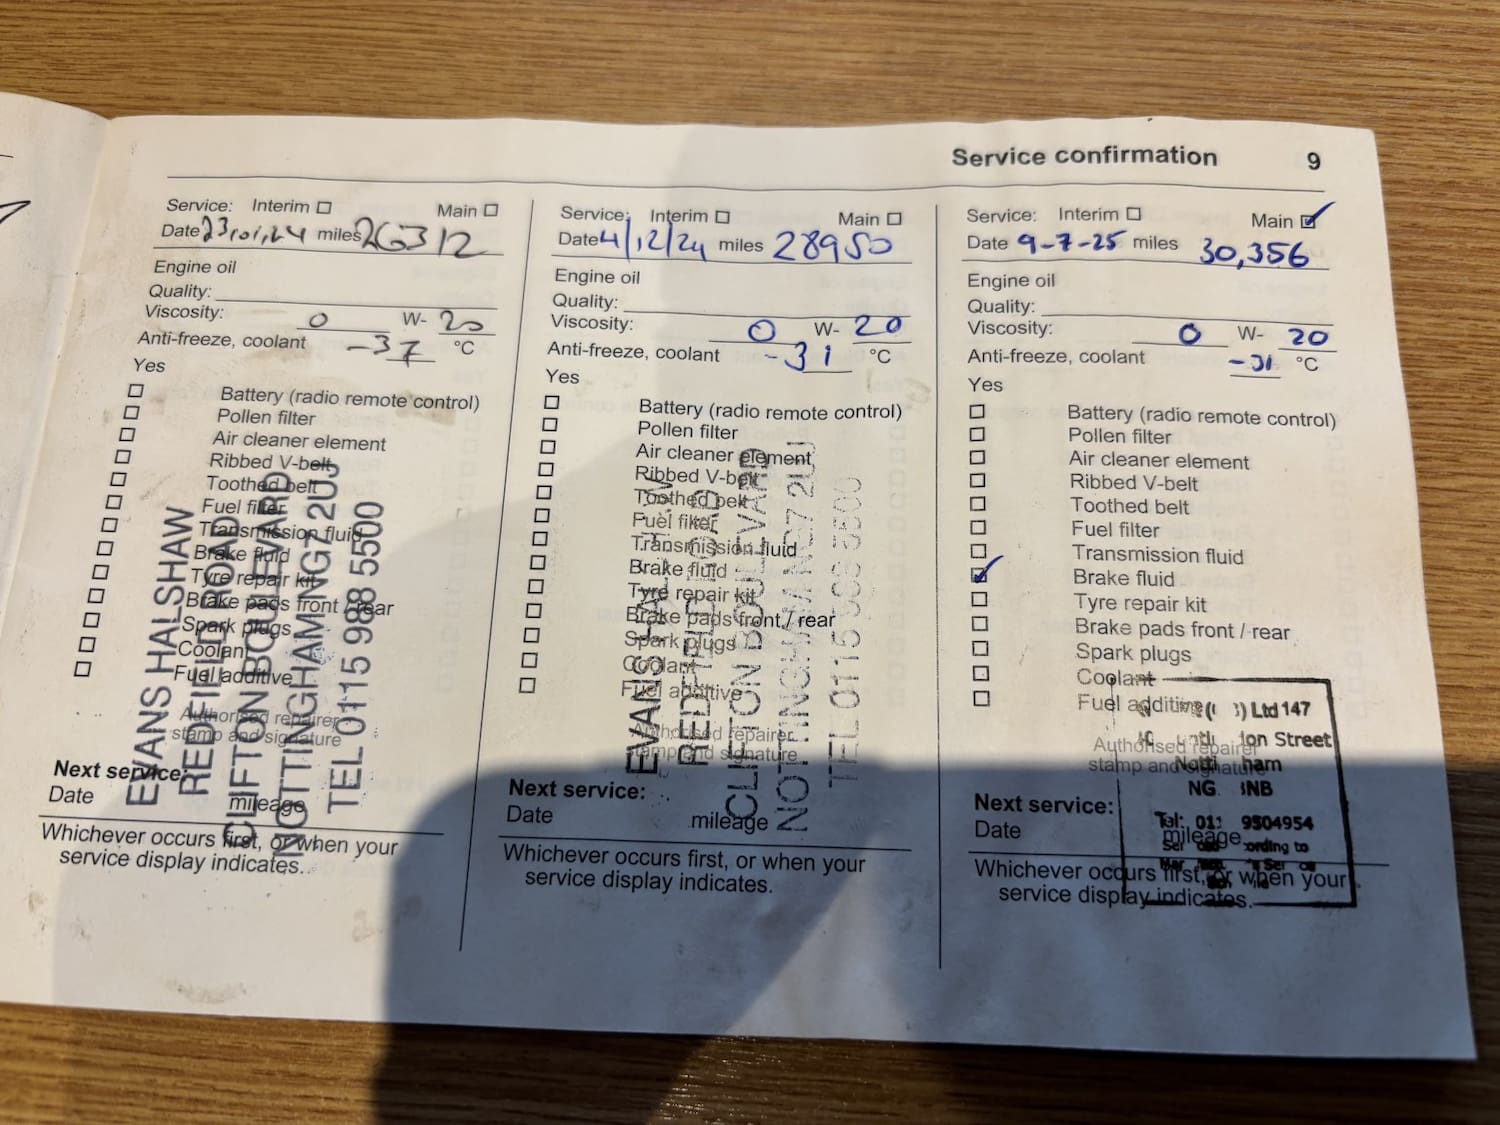 Service confirmation 9
Service: Interim Main
Date 23,01,24 miles 26312
Engine oil
Quality:
Viscosity: 0 W- 20
Anti-freeze, coolant -37 °C
Yes
Battery (radio remote control)
Pollen filter
Air cleaner element
Ribbed V-belt
Toothed belt
Fuel filter
Transmission fluid
Brake fluid
Tyre repair kit
Brake pads front / rear
Spark plugs
Coolant
Fuel additive
Authorised repairer
stamp and signature
EVANS HALSHAW
REDFIELD ROAD
CLIFTON BOULEVARD
NOTTINGHAM NG7 2UJ
TEL 0115 988 5500
Next service:
Date mileage
Whichever occurs first, or when your
service display indicates.
Service: Interim Main
Date 4/12/24 miles 28950
Engine oil
Quality:
Viscosity: 0 W- 20
Anti-freeze, coolant -31 °C
Yes
Battery (radio remote control)
Pollen filter
Air cleaner element
Ribbed V-belt
Toothed belt
Fuel filter
Transmission fluid
Brake fluid
Tyre repair kit
Brake pads front / rear
Spark plugs
Coolant
Fuel additive
Authorised repairer
stamp and signature
EVANS HALSHAW
REDFIELD ROAD
CLIFTON BOULEVARD
NOTTINGHAM NG7 2UJ
TEL 0115 988 5500
Next service:
Date mileage
Whichever occurs first, or when your
service display indicates.
Service: Interim Main
Date 9-7-25 miles 30,356
Engine oil
Quality:
Viscosity: 0 W- 20
Anti-freeze, coolant -31 °C
Yes
Battery (radio remote control)
Pollen filter
Air cleaner element
Ribbed V-belt
Toothed belt
Fuel filter
Transmission fluid
Brake fluid
Tyre repair kit
Brake pads front / rear
Spark plugs
Coolant
Fuel additive
Authorised repairer
stamp and signature
Ltd 147
Street
NG
Tel: 9504954
to
Next service:
Date mileage
Whichever occurs first, or when your
service display indicates.